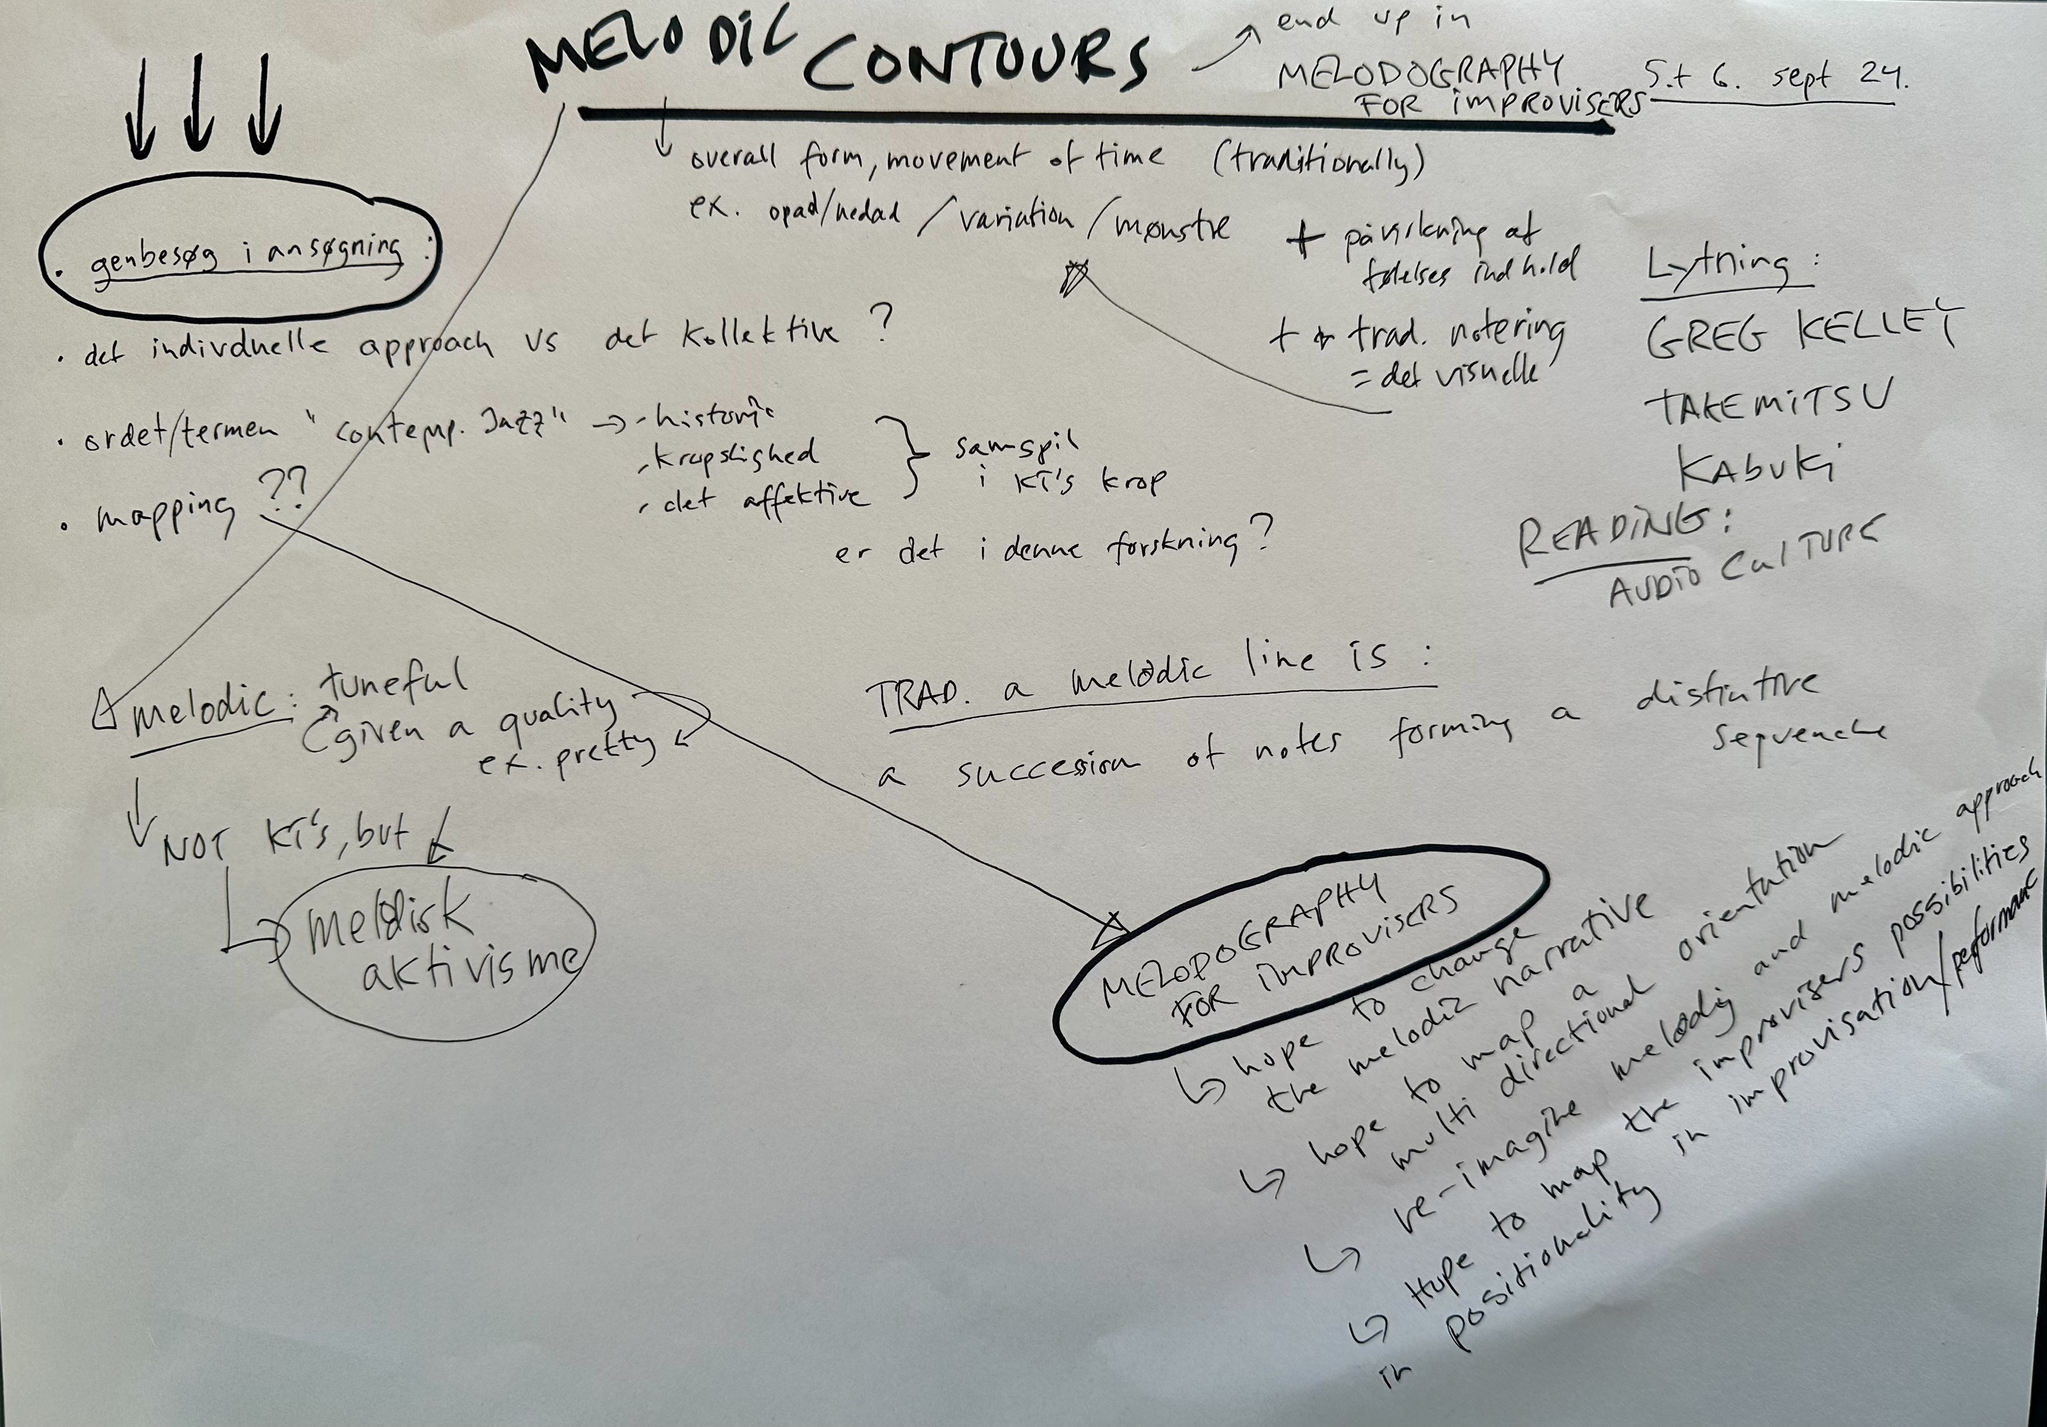 MELODIC CONTOURS
end up in
MELODOGRAPHY
FOR IMPROVISERS
5.+ 6. sept 24.
overall form, movement of time (traditionally)
ex. opad/nedad / variation / mønstre
+ påvirkning af
følelses indhold
+ trad. notering
= det visuelle
Lytning :
GREG KELLEY
TAKEMITSU
KABUKI
READING :
AUDIO CULTURE
· genbesøg i ansøgning :
· det indivduelle approach vs det kollektive ?
· ordet/termen "contemp. Jazz" → · historie
· kropslighed
· det affektive
samspil
i KT's krop
· mapping ??
er det i denne forskning ?
melodic : tuneful
given a quality
ex. pretty
NOT KT's, but
melodisk
aktivisme
TRAD. a melodic line is :
a succession of notes forming a distintive
sequenche
MELODOGRAPHY
FOR IMPROVISERS
hope to change
the melodic narrative
hope to map a
multi directional orientation
re-imagine melodig and melodic approach
Hope to map the improvisers possibilities
in positionality in improvisation/performanc